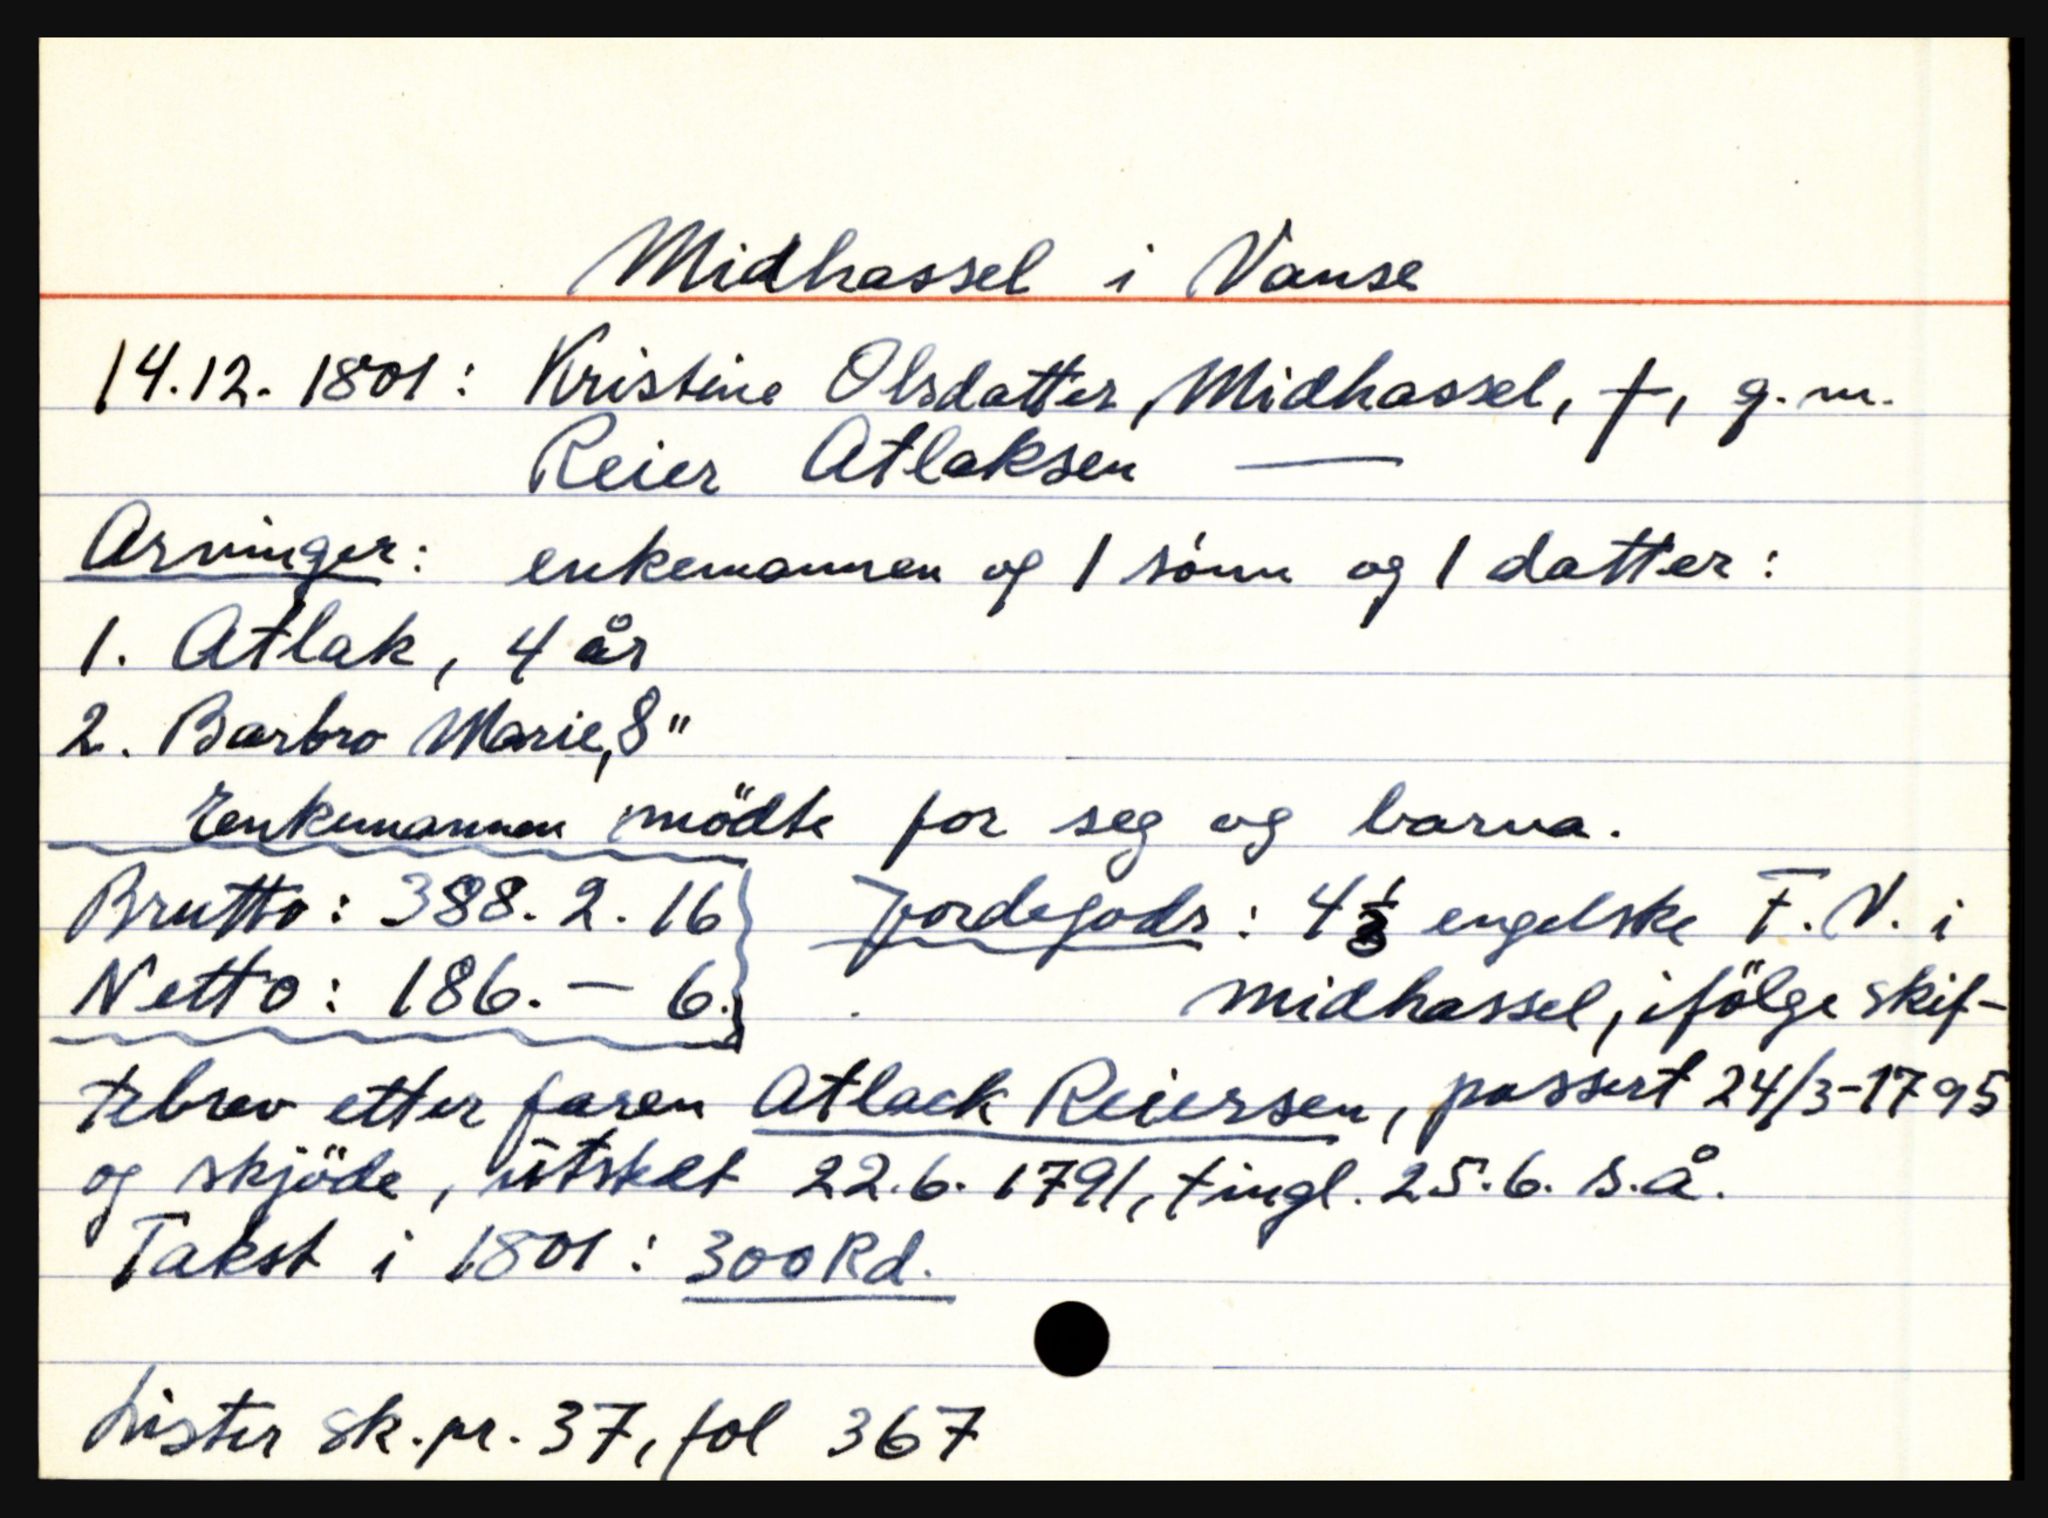 Midhassel i Vanse
14.12. 1801: Kristine Olsdatter, Midhassel, †, g. m.
Reier Atlaksen —
Arvinger: enkemannen og 1 sönn og 1 datter:
1. Atlak, 4 år
2. Barbro Marie, 8 "
Enkemannen mödte for seg og barna.
Brutto: 388. 2. 16 Jordegods: 4 engelske F. V. i
Netto: 186. — 6. Midhassel, ifölge skif-
tebrev etter faren Atlack Reiersen, passert 24/3-1795
og skjöde, utstedt 22.6. 1791, tingl. 25.6. s.å.
Takst i 1801: 300 Rd.
Lister sk. pr. 37, fol 367